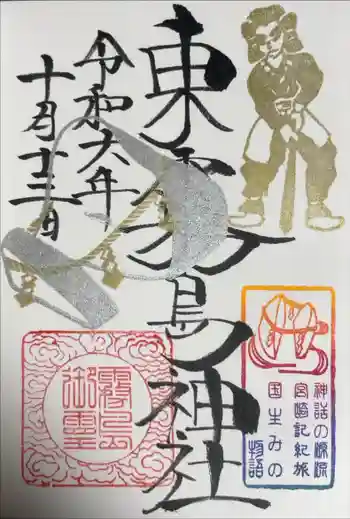 東霧島神社
令和六年
十月十三日
神話の源流
宮崎記紀旅
国生みの
物語
霧島
御霊